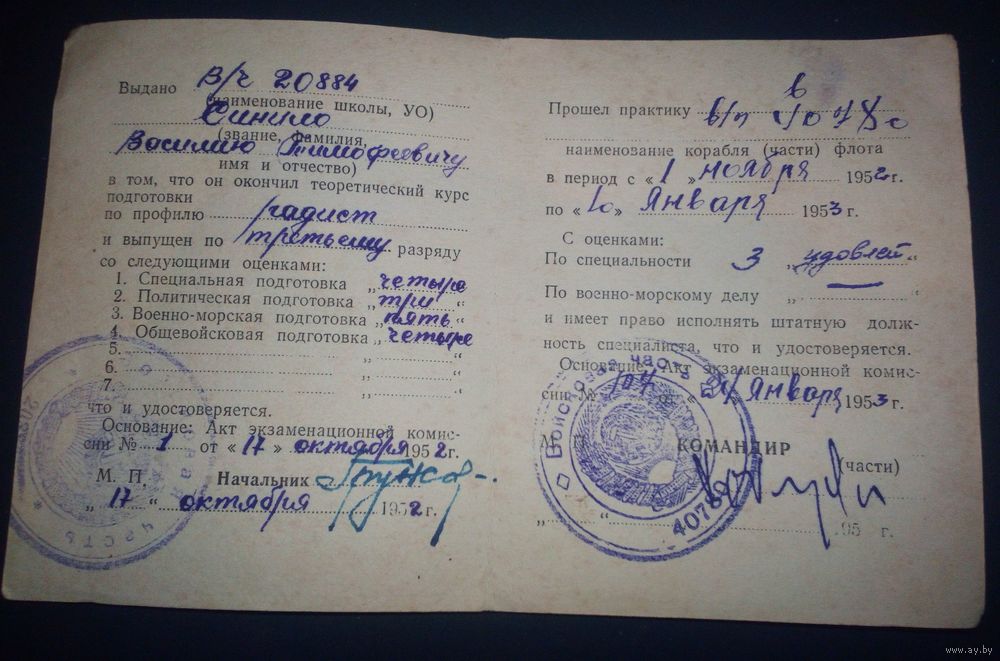 Выдано В/ч 20884
(наименование школы, УО)
Синило
(звание, фамилия,
Василию Тимофеевичу
имя и отчество)
в том, что он окончил теоретический курс
подготовки
по профилю радист
и выпущен по третьему разряду
со следующими оценками:
1. Специальная подготовка „четыре“
2. Политическая подготовка „три“
3. Военно-морская подготовка „пять“
4. Общевойсковая подготовка „четыре
5. „ “
6. „ “
7. „ “
что и удостоверяется.
Основание: Акт экзаменационной комис-
сии № 1 от «17» октября 1952 г.
М. П. Начальник
„17“ октября 1952 г.
Прошел практику в
в/ч
наименование корабля (части) флота
в период с «1» ноября 1952 г.
по «10» Января 1953 г.
С оценками:
По специальности 3 „удовлет“
По военно-морскому делу „ — “
и имеет право исполнять штатную долж-
ность специалиста, что и удостоверяется.
Основание: Акт экзаменационной комис-
сии № от « » Января 1953 г.
М. П. КОМАНДИР
(части)
„ “ 195 г.
Войсковая часть
40789
www.ay.by